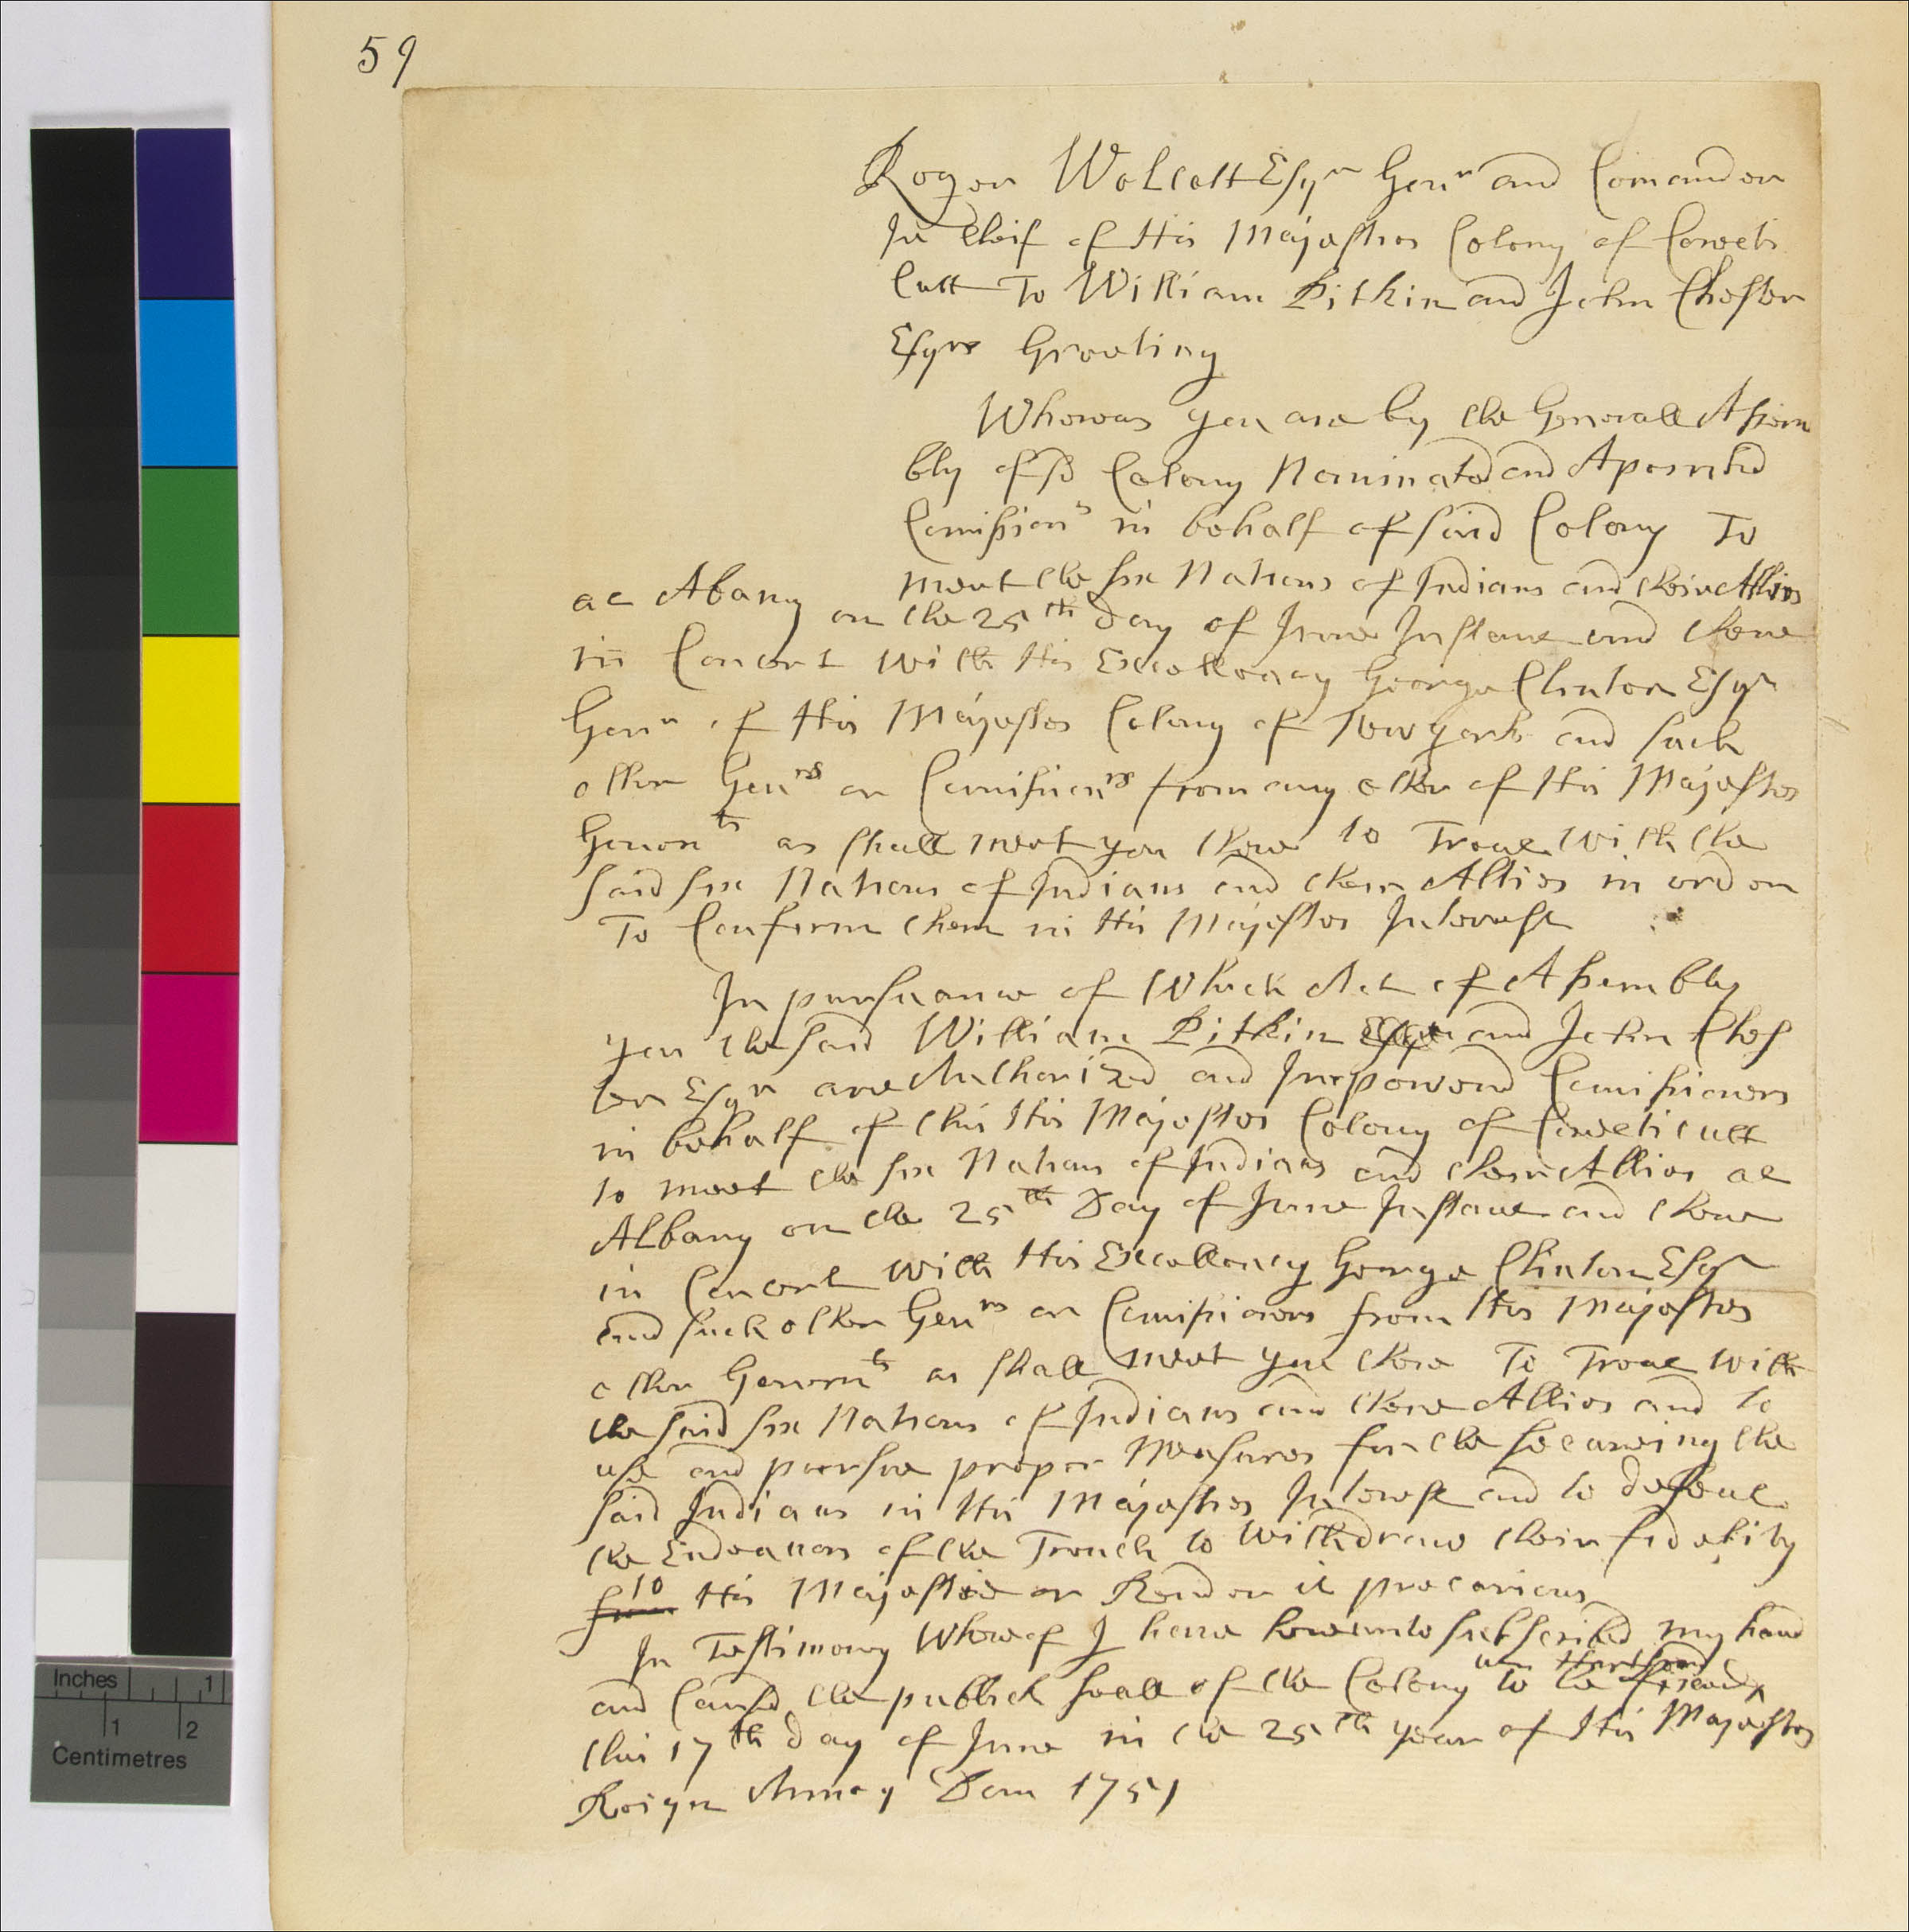 59
Roger Wolcott Esqr Govr and Comander
In Cheif of His Majesties Colony of Conecti
cutt To William Pitkin and John Chester
Esqrs Greeting
Whereas you are by the Generall Assem
bly of sd Colony Nominated and Apointed
Comissionrs in behalf of said Colony To
meet the six Nations of Indians and their Allies
at Abany on the 25th day of June Instant and there
in Concert with His Excellency George Clinton Esqr
Govr of His Majesties Colony of New york and such
other Govrs or Comissionrs from any other of His Majesties
Governts as shall meet you there to Treat with the
said six Nations of Indians and their Allies in order
To Confirm them in His Majesties Interest
In pursuance of Which Act of Assembly
you the said William Pitkin and John Ches
ter Esqr are Authorized and Impowered Comissioners
in behalf of this His Majesties Colony of Conecticutt
to meet the six Nations of Indians and their Allies at
Albany on the 25th Day of June Instant and there
in Concert with His Excellency George Clinton Esqr
and such other Govrs or Comissioners from His Majesties
other Governts as shall meet you there To Treat with
the said six Nations of Indians and there Allies and to
use and pursue proper Measures for the securing the
said Indians in His Majesties Interest and to defeat
the Endeavors of the French to withdraw their fidelity
from to His Majestie or Render it precarious
In Testimony Whereof I have hereunto subscribed my hand
and Caused the publick seale of the Colony to be affixed
Hartford
this 17th day of June in the 25th year of His Majesties
Reign Annoq Dom 1751
Inches 1
1 2
Centimetres